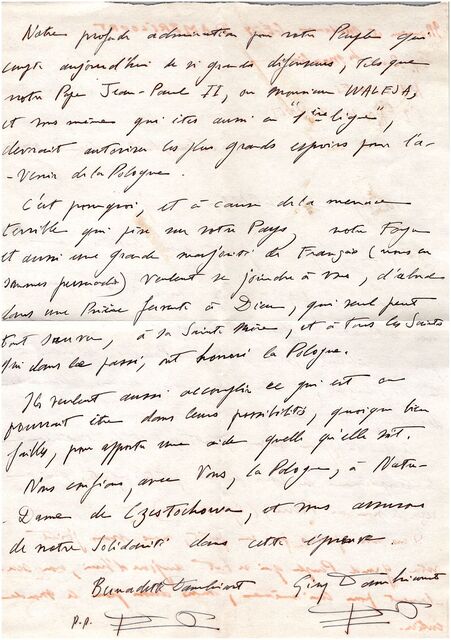 Notre profonde admiration pour votre Peuple qui
compte aujourd'hui de si grands défenseurs, tels que
notre Pape Jean-Paul II, ou Monsieur WALESA,
et vous même qui êtes aussi en "1ère ligne",
devrait autoriser les plus grands espoirs pour l'a-
-venir de la Pologne.
C'est pourquoi, et à cause de la menace
terrible qui pèse sur votre Pays, notre Foyer
et aussi une grande majorité de Français (nous en
sommes persuadés) veulent se joindre à vous, d'abord
dans une Prière fervente à Dieu, qui seul peut
tout sauver, à sa Sainte Mère, et à tous les Saints
qui dans le passé, ont honoré la Pologne.
Ils veulent aussi accomplir ce qui est ou
pourrait être dans leurs possibilités, quoique bien
faibles, pour apporter une aide quelle qu'elle soit.
Nous confions, avec Vous, la Pologne, à Notre-
-Dame de Czestochowa, et vous assurons
de notre Solidarité dans cette épreuve.
Bernadette Dambricourt Guy Dambricourt
P.P.